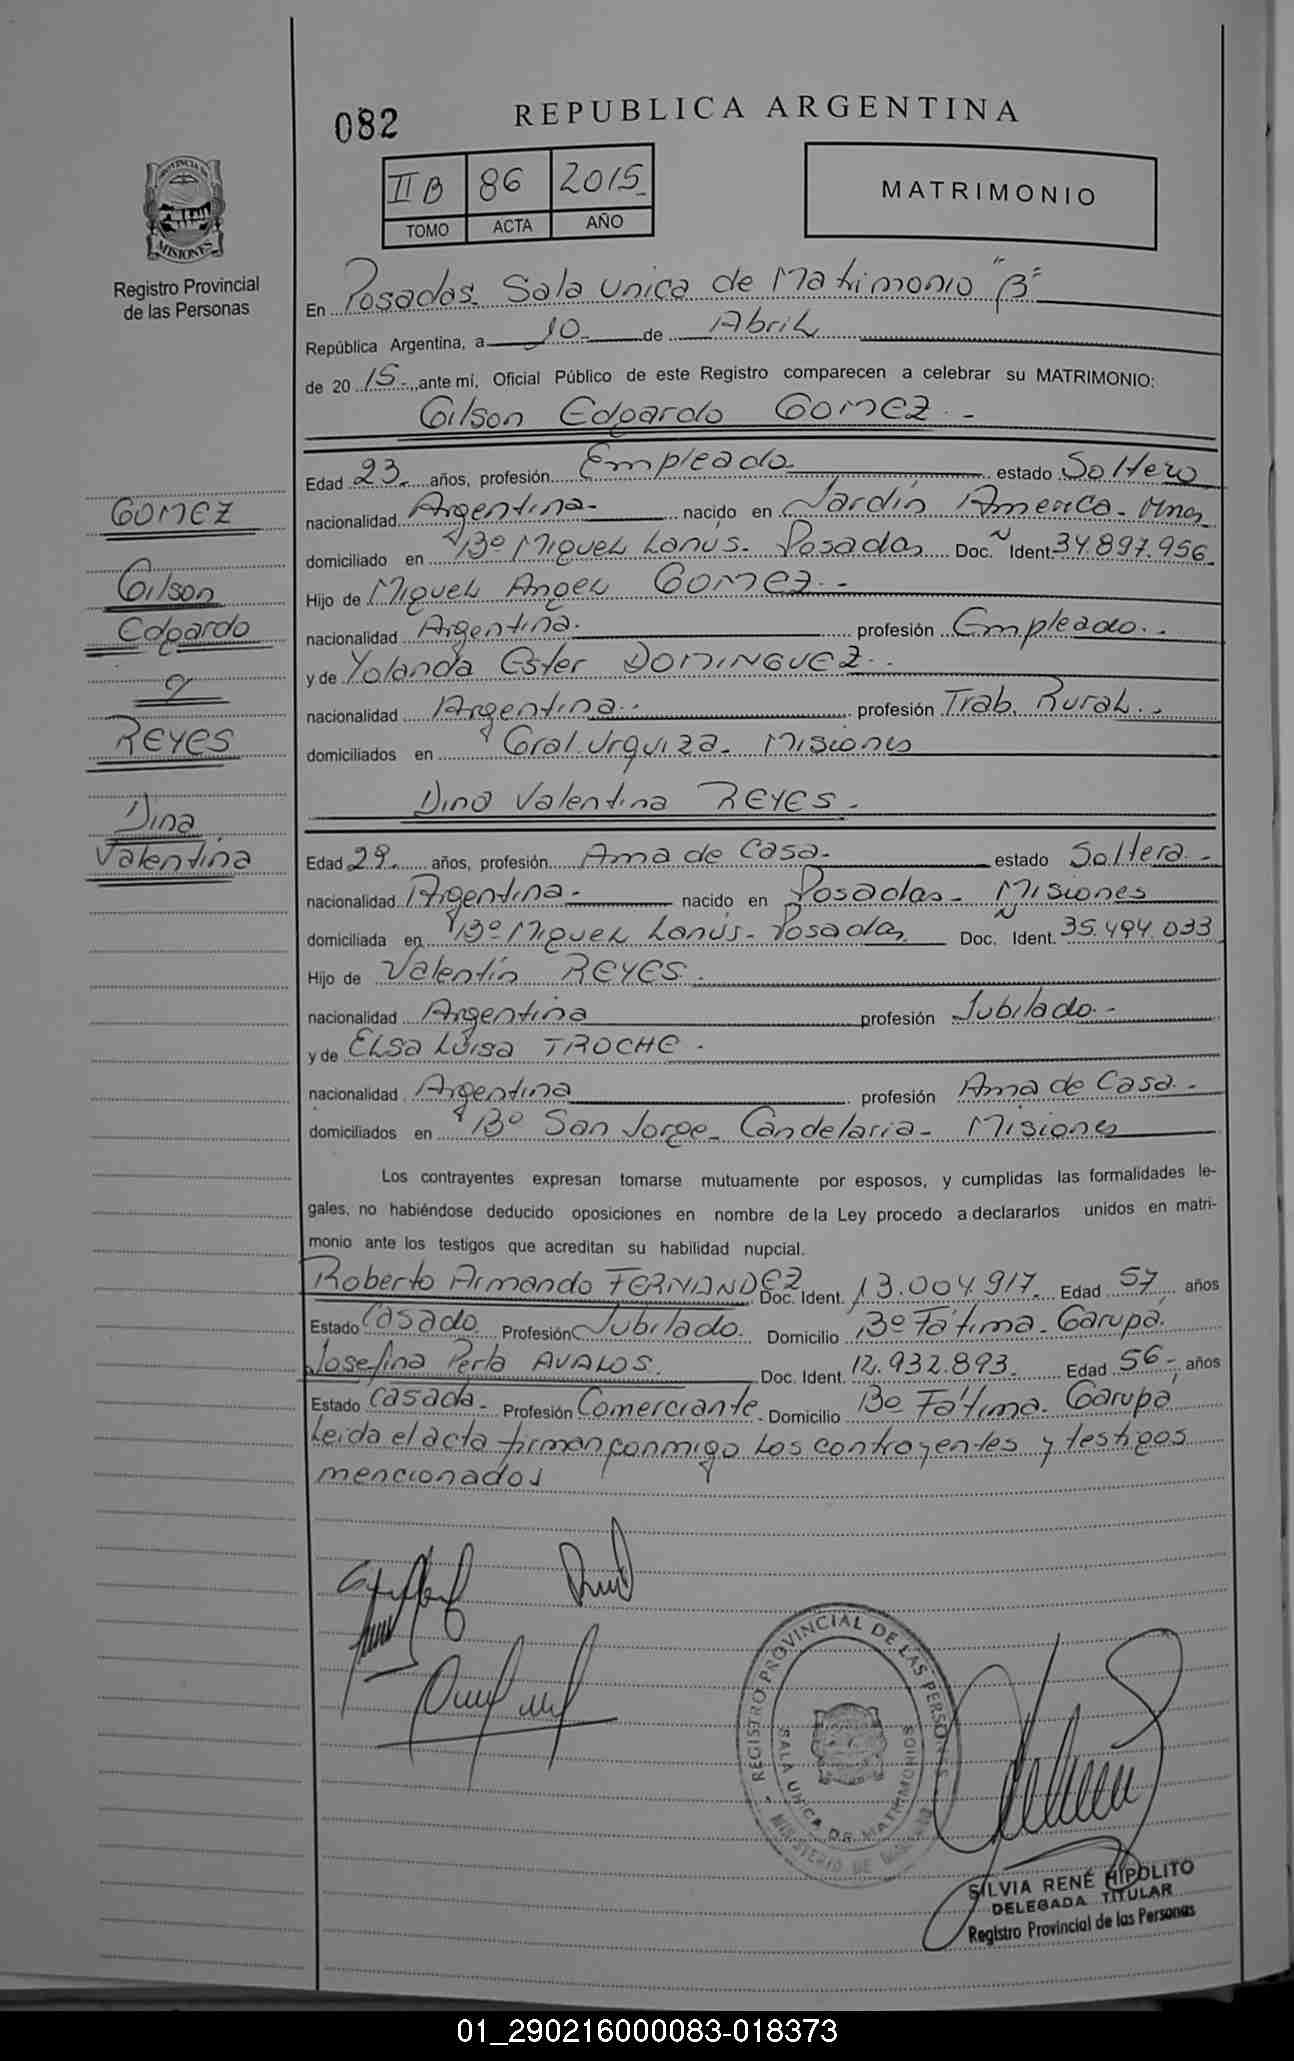 082
REPUBLICA ARGENTINA
II B 86 2015
TOMO ACTA AÑO
MATRIMONIO
PROVINCIA DE
MISIONES
Registro Provincial
de las Personas
En Posadas. Sala Unica de Matrimonio "B"
República Argentina, a 10 de Abril
de 2015., ante mí, Oficial Público de este Registro comparecen a celebrar su MATRIMONIO:
Gilson Edgardo GOMEZ.-
Edad 23. años, profesión Empleado estado Soltero
nacionalidad Argentina- nacido en Jardín America- Mnes
domiciliado en Bº Miguel Lanús- Posadas Doc. N Ident 34.897.956
Hijo de Miguel Angel GOMEZ.-
nacionalidad Argentina. profesión Empleado.-
y de Yolanda Ester DOMINGUEZ.-
nacionalidad Argentina.- profesión Trab. Rural.-
domiciliados en Gral. Urquiza- Misiones
Dina Valentina REYES.-
Edad 29. años, profesión Ama de Casa- estado Soltera.-
nacionalidad Argentina.- nacido en Posadas- Misiones
domiciliada en Bº Miguel Lanús- Posadas Doc. N Ident. 35.494.033
Hijo de Valentín REYES.
nacionalidad Argentina profesión Jubilado.-
y de Elsa Luisa TROCHE.
nacionalidad Argentina profesión Ama de Casa.-
domiciliados en Bº San Jorge- Candelaria- Misiones
Los contrayentes expresan tomarse mutuamente por esposos, y cumplidas las formalidades le-
gales, no habiéndose deducido oposiciones en nombre de la Ley procedo a declararlos unidos en matri-
monio ante los testigos que acreditan su habilidad nupcial.
Roberto Armando FERNANDEZ Doc. Ident. 13.004.917. Edad 57, años
Estado Casado Profesión Jubilado. Domicilio Bº Fátima- Garupá.
Josefina Perla AVALOS. Doc. Ident. 12.932.893. Edad 56-, años
Estado Casada- Profesión Comerciante. Domicilio Bº Fátima- Garupá
Leida el acta firman conmigo los contrayentes y testigos
mencionados
GOMEZ
Gilson
Edgardo
y
REYES
Dina
Valentina
REGISTRO PROVINCIAL DE LAS PERSONAS
SALA UNICA DE MATRIMONIOS
MINISTERIO DE
SILVIA RENÉ HIPOLITO
DELEGADA TITULAR
Registro Provincial de las Personas
01_290216000083-018373